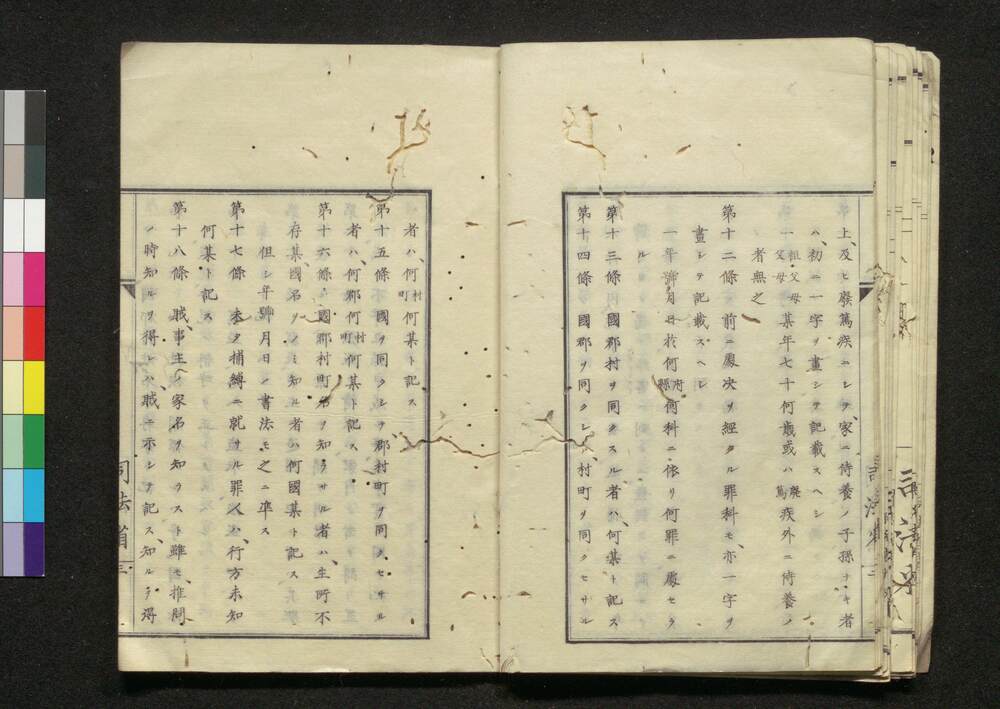 上、及ヒ癈篤疾ニシテ、家ニ侍養ノ子孫ナキ者
ハ、初ニ一字ヲ畫シテ記載スヘシ
一祖父母父母某年七十何歳或ハ癈篤疾外ニ侍養ノ
者無之
第十二條 前ニ處決ヲ經タル罪科モ、亦一字ヲ
畫シテ記載スヘシ
一年號月日於何府縣何科ニ依リ何罪ニ處セラ
ル
第十三條 國郡村ヲ同クスル者ハ、何某ト記ス
第十四條 國郡ヲ同クシ、村町ヲ同クセサル
者ハ、何村町何某ト記ス
第十五條 國ヲ同クシテ郡村町ヲ同クセサル
者ハ、何郡何村町何某ト記ス
第十六條 國郡村町名ヲ知ラサル者ハ、生所不
存某國名ヲノミ知ル者ハ何國某ト記ス
但シ年號月日ノ書法モ之ニ準ス
第十七條 未タ捕縛ニ就サル罪人ハ、行方未知
何某ト記ス
第十八條 賊、事主ノ家名ヲ知ラスト雖モ、推問
ノ時知ルヲ得レハ、賊ニ示シテ記ス、知ルヲ得
司法省